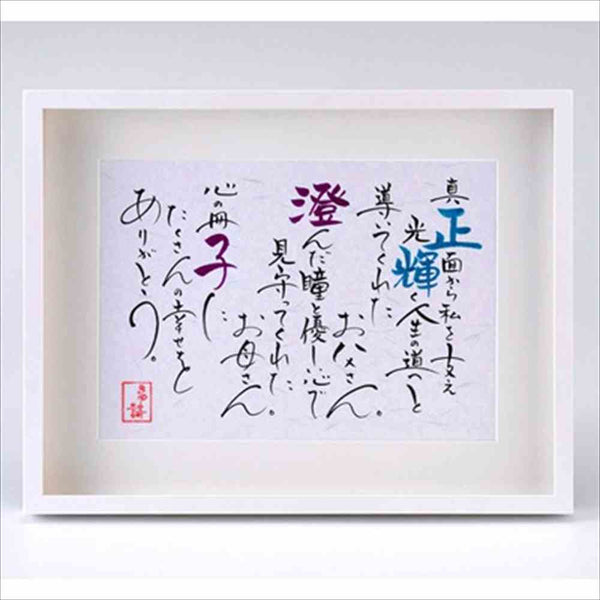 真正面から私を支え
光輝く人生の道へと
導いてくれた
お父さん。
澄んだ瞳と優し心で
見守ってくれた
お母さん。
心の冊子に
たくさんの幸せを
ありがとう。